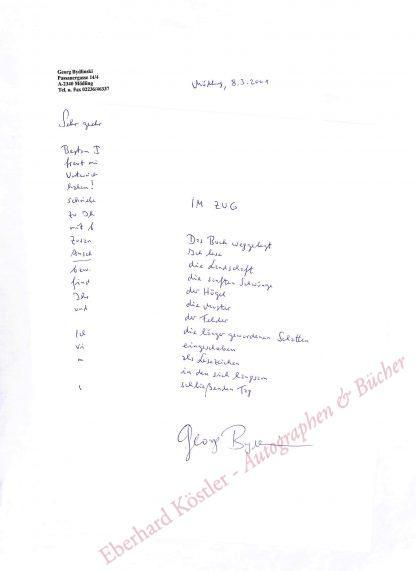 Georg Bydlinski
Passauergasse 14/4
A-2340 Mödling
Tel. u. Fax 02236/46337
Mödling, 8.3.2001
Sehr geehr
Besten D
freut mi
haben!
schicke
zu Ih
mit b
IM ZUG
Das Buch weggelegt
Ich lese
die Landschaft
die sanften Schwünge
der Hügel
die Muster
der Felder
die länger gewordenen Schatten
eingeschoben
als Lesezeichen
in den sich langsam
schließenden Tag
bzw.
Ihr
und
Ich
Georg Byd
Eberhard Köstler - Autographen & Bücher